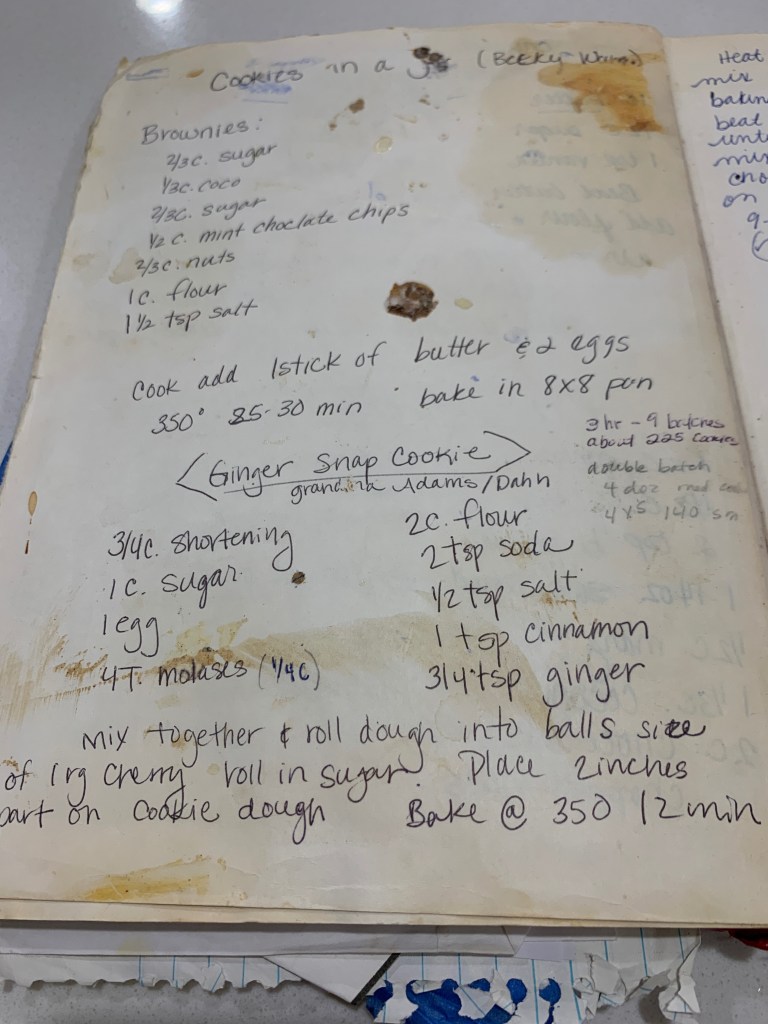 Cookies in a (Becky
Brownies:
2/3c. sugar
1/3c. coco
2/3c. sugar
1/2 c. mint choclate chips
2/3c. nuts
1c. flour
1 1/2 tsp salt
Cook add 1stick of butter & 2 eggs
350° 25-30 min bake in 8x8 pan
3 hr - 9 batches
about 225 cookies
double batch
4 doz med
4x5 140 sm
<Ginger Snap Cookie>
grandma Adams/Dahn
3/4c. shortening
1c. sugar
1egg
4T. molases (1/4c)
2c. flour
2tsp soda
1/2 tsp salt
1 tsp cinnamon
3/4 tsp ginger
Mix together & roll dough into balls size
of lrg Cherry roll in sugar. Place 2inches
part on cookie dough Bake @ 350 12min
Heat
mix
bakin
beat
unti
mix
cho
on
9-